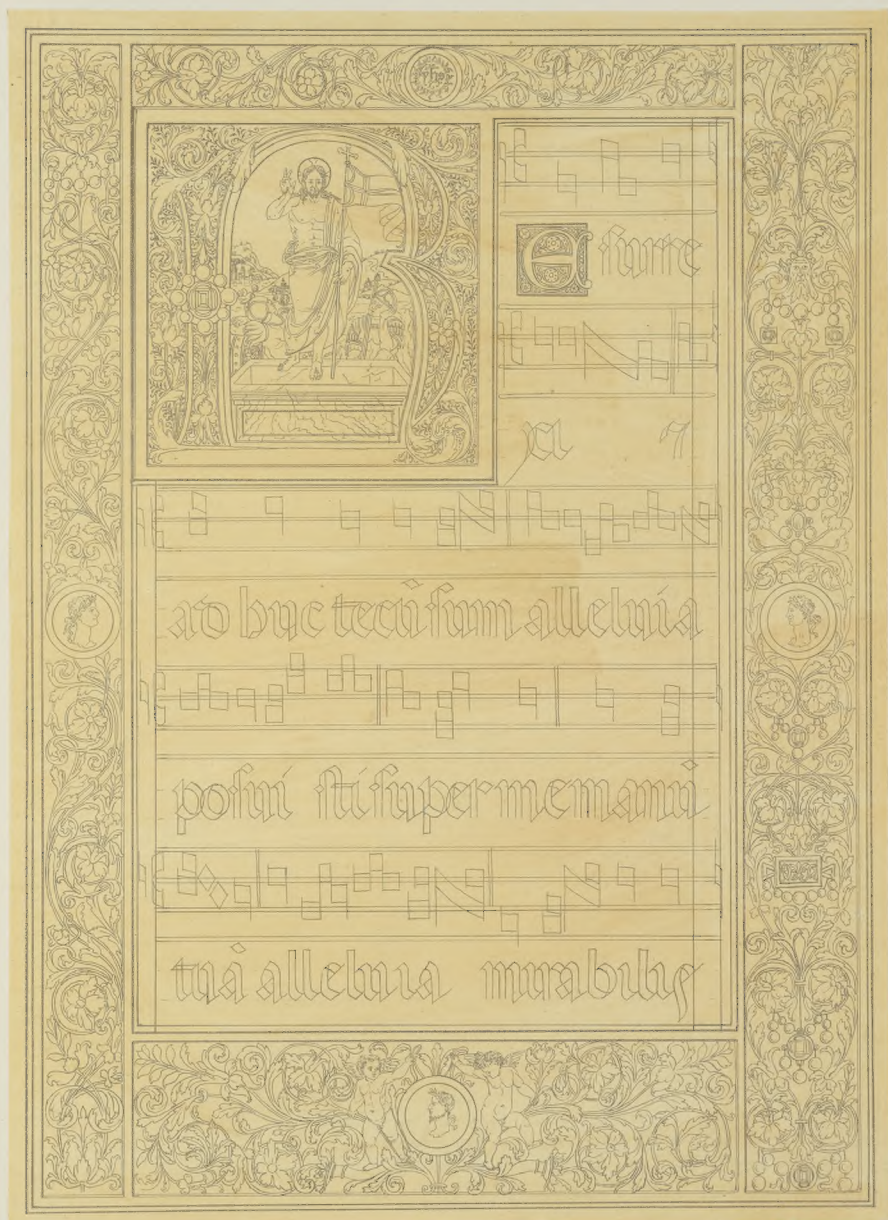 yhs
R Esurre
xi ⁊
adhuc tecū sum alleluia
posui sti super me manū
tuā alleluia mirabilis